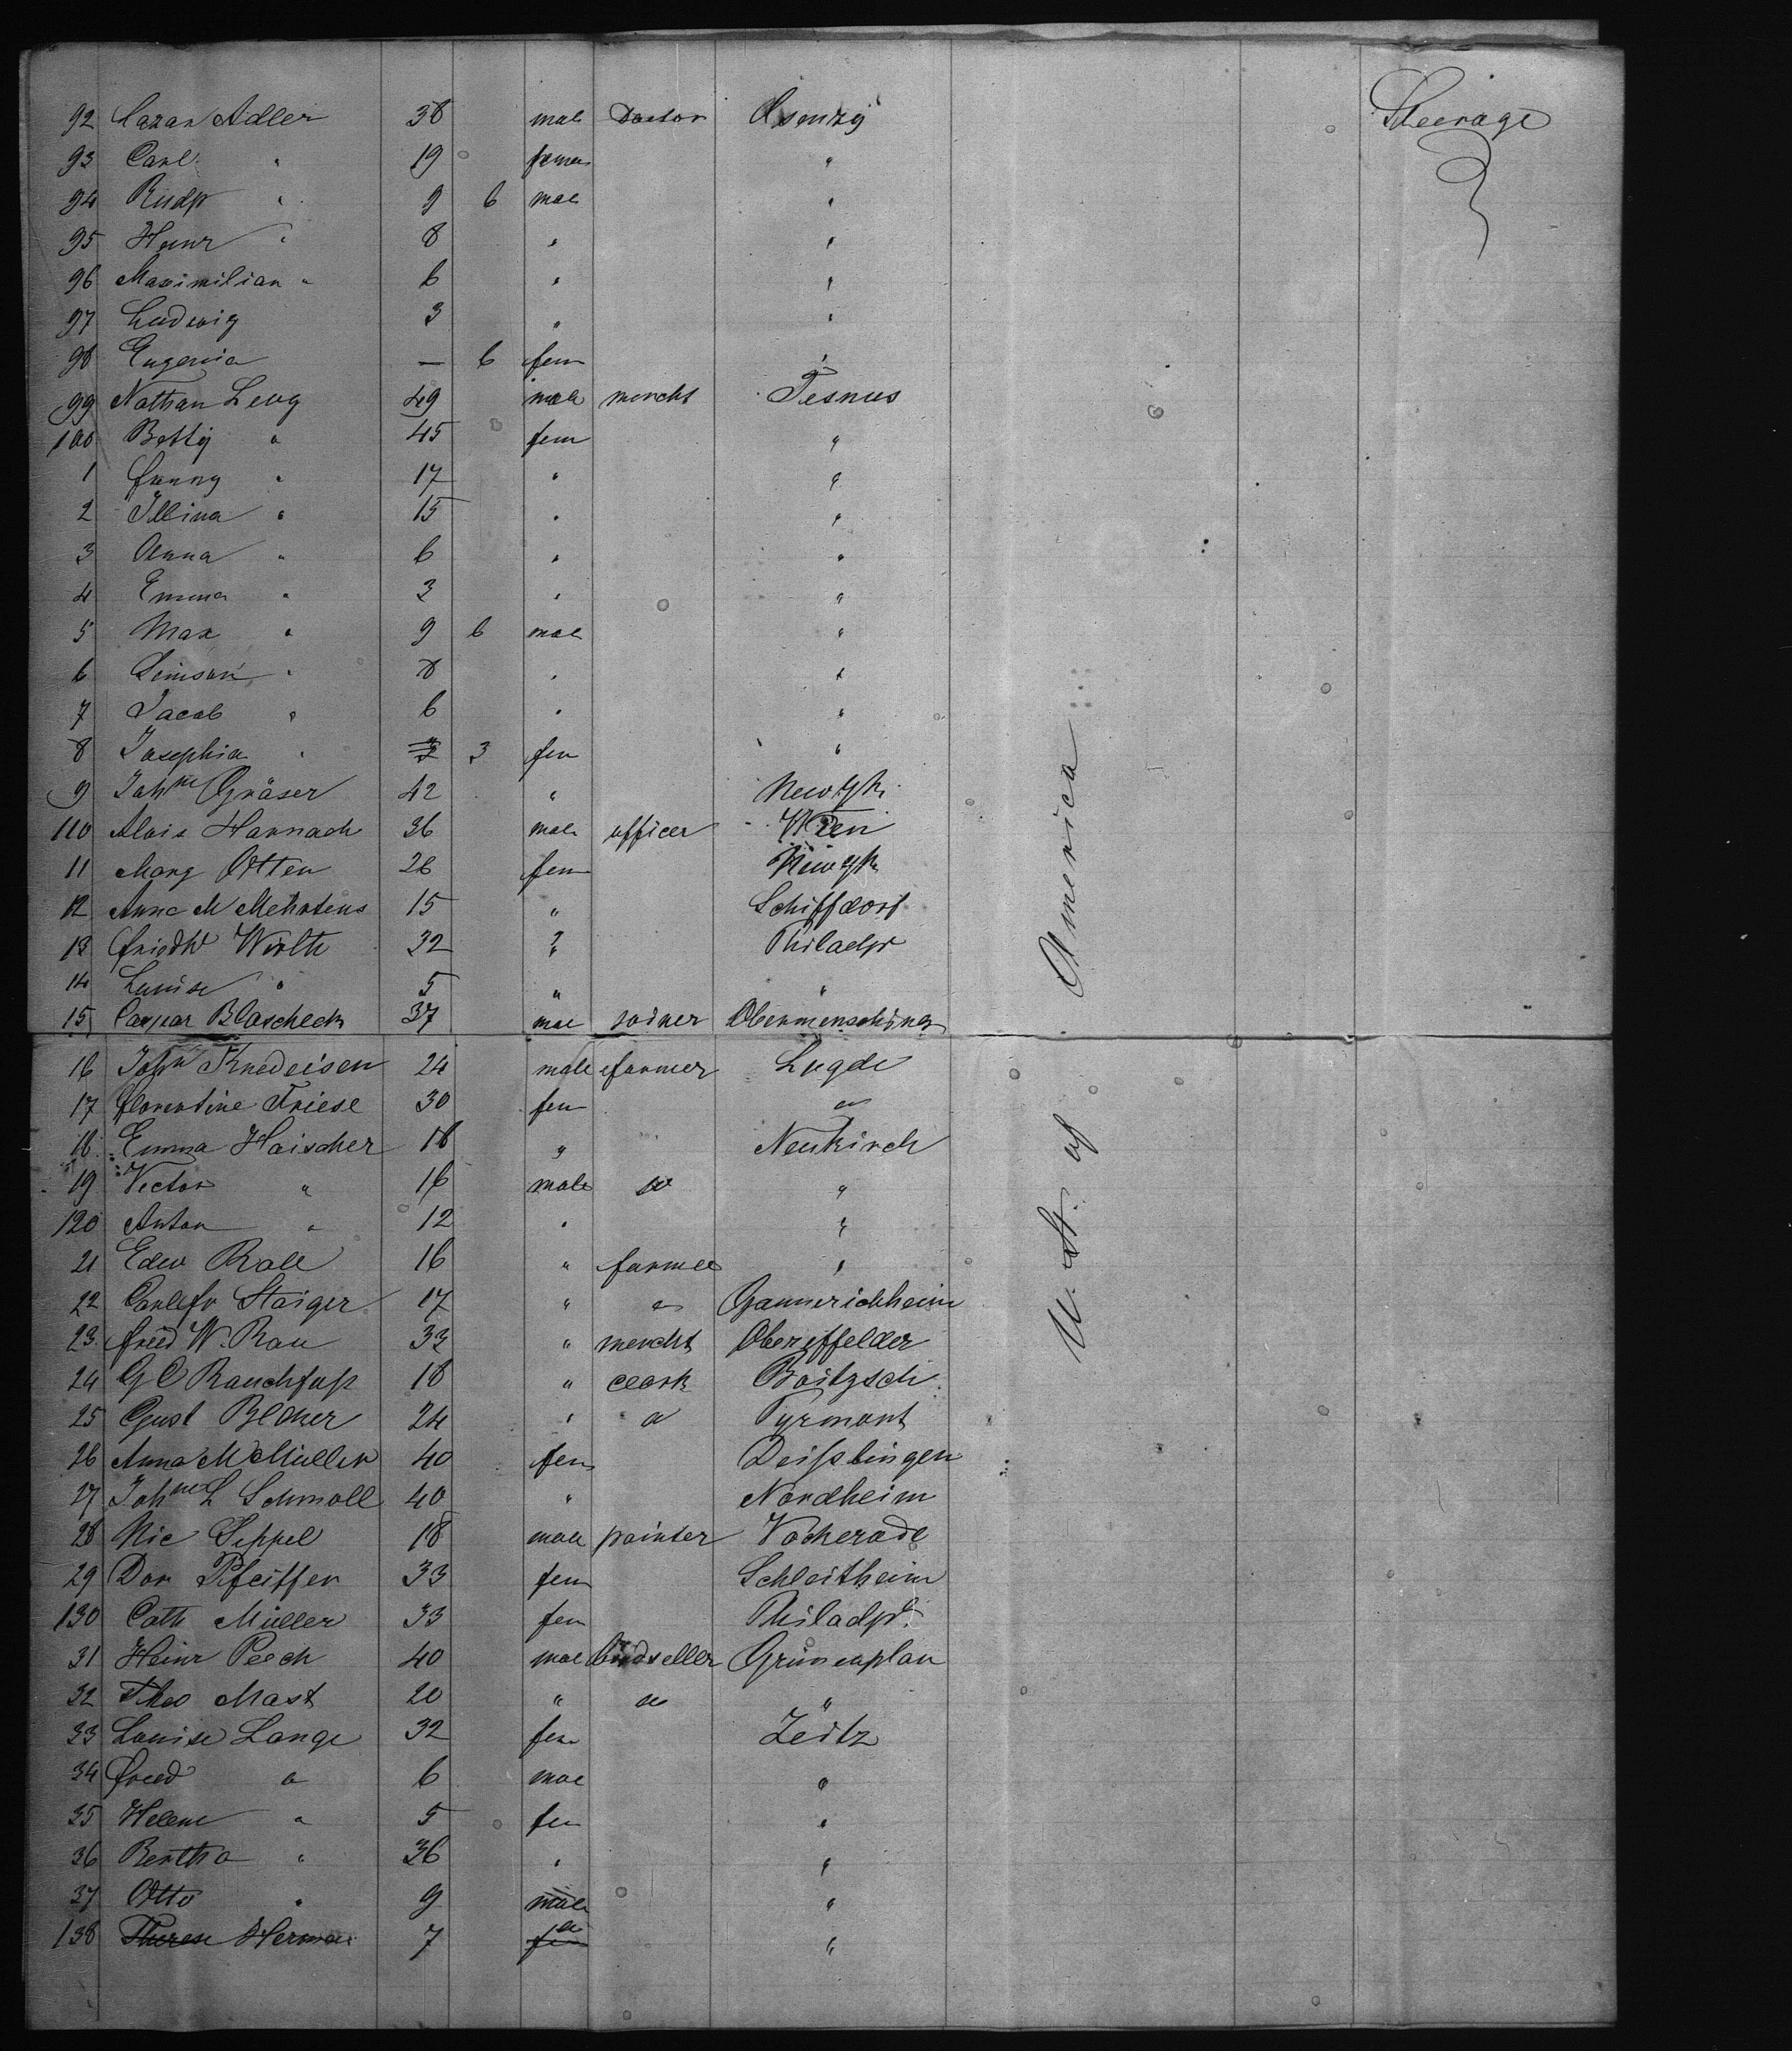 92 Lazar Adler 38 male Doctor Steerage
93 Carl " 19 female "
94 Rudp " 9 6 male "
95 Heinr " 8 " "
96 Maximilian " 6 " "
97 Ludwig 3 " "
98 Eugenia — 6 fem "
99 Nathan Levy 49 male mercht Tesnus
100 Betty " 45 fem "
1 Fanny " 17 " "
2 " 15 " "
3 Anna " 6 " "
4 Emma " 3 " "
5 Max " 9 6 male "
6 Simson " 8 " "
7 Jacob " 6 " "
8 Josephia " 3 fem "
9 Johne Gräser 42 " NewYk
110 Alois Harnach 36 male officer Wien
11 Marg Otten 26 fem NewYk
12 Anna M Mehrtens 15 " Schiffdorf
13 Friedke Wirth 32 " Philadp
14 Luise " 5 " "
15 Caspar Blascheck 37 male joiner
16 24 male farmer Lugde
17 Florentine Friese 30 fem "
18 Emma Haischer 18 " Neukirch
19 Victor " 16 male "
120 Anton " 12 " "
21 Edw Rall 16 " farmer "
22 Staiger 17 " "
23 Fried W. Rau 33 " mercht
24 G C Rauchfuß 18 " clerk
25 Gust 24 " " Pyrmont
26 Anna M Müller 40 fem Deißlingen
27 Johne L Schmoll 40 " Nordheim
28 Nic Seppel 18 male painter Vockerode
29 Dor Pfeiffer 33 fem Schleitheim
130 Cath Müller 33 fem Philadp.
31 Heinr Peech 40 male birdseller Grünenplan
32 Theo Mast 20 " " "
33 Louise Lange 32 fem Zeitz
34 Fried " 6 male "
35 Helene " 5 fem "
36 Bertha " 36 " "
37 Otto " 9 male "
138 Therese Herman 7 "
U. St. of America